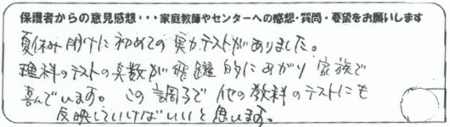 保護者からの意見感想・・・家庭教師やセンターへの感想・質問・要望をお願いします
夏休み明けに初めての実力テストがありました。
理科のテストの点数が飛躍的にあがり家族で
喜んでいます。この調子で他の教科のテストにも
反映していけばいいと思います。